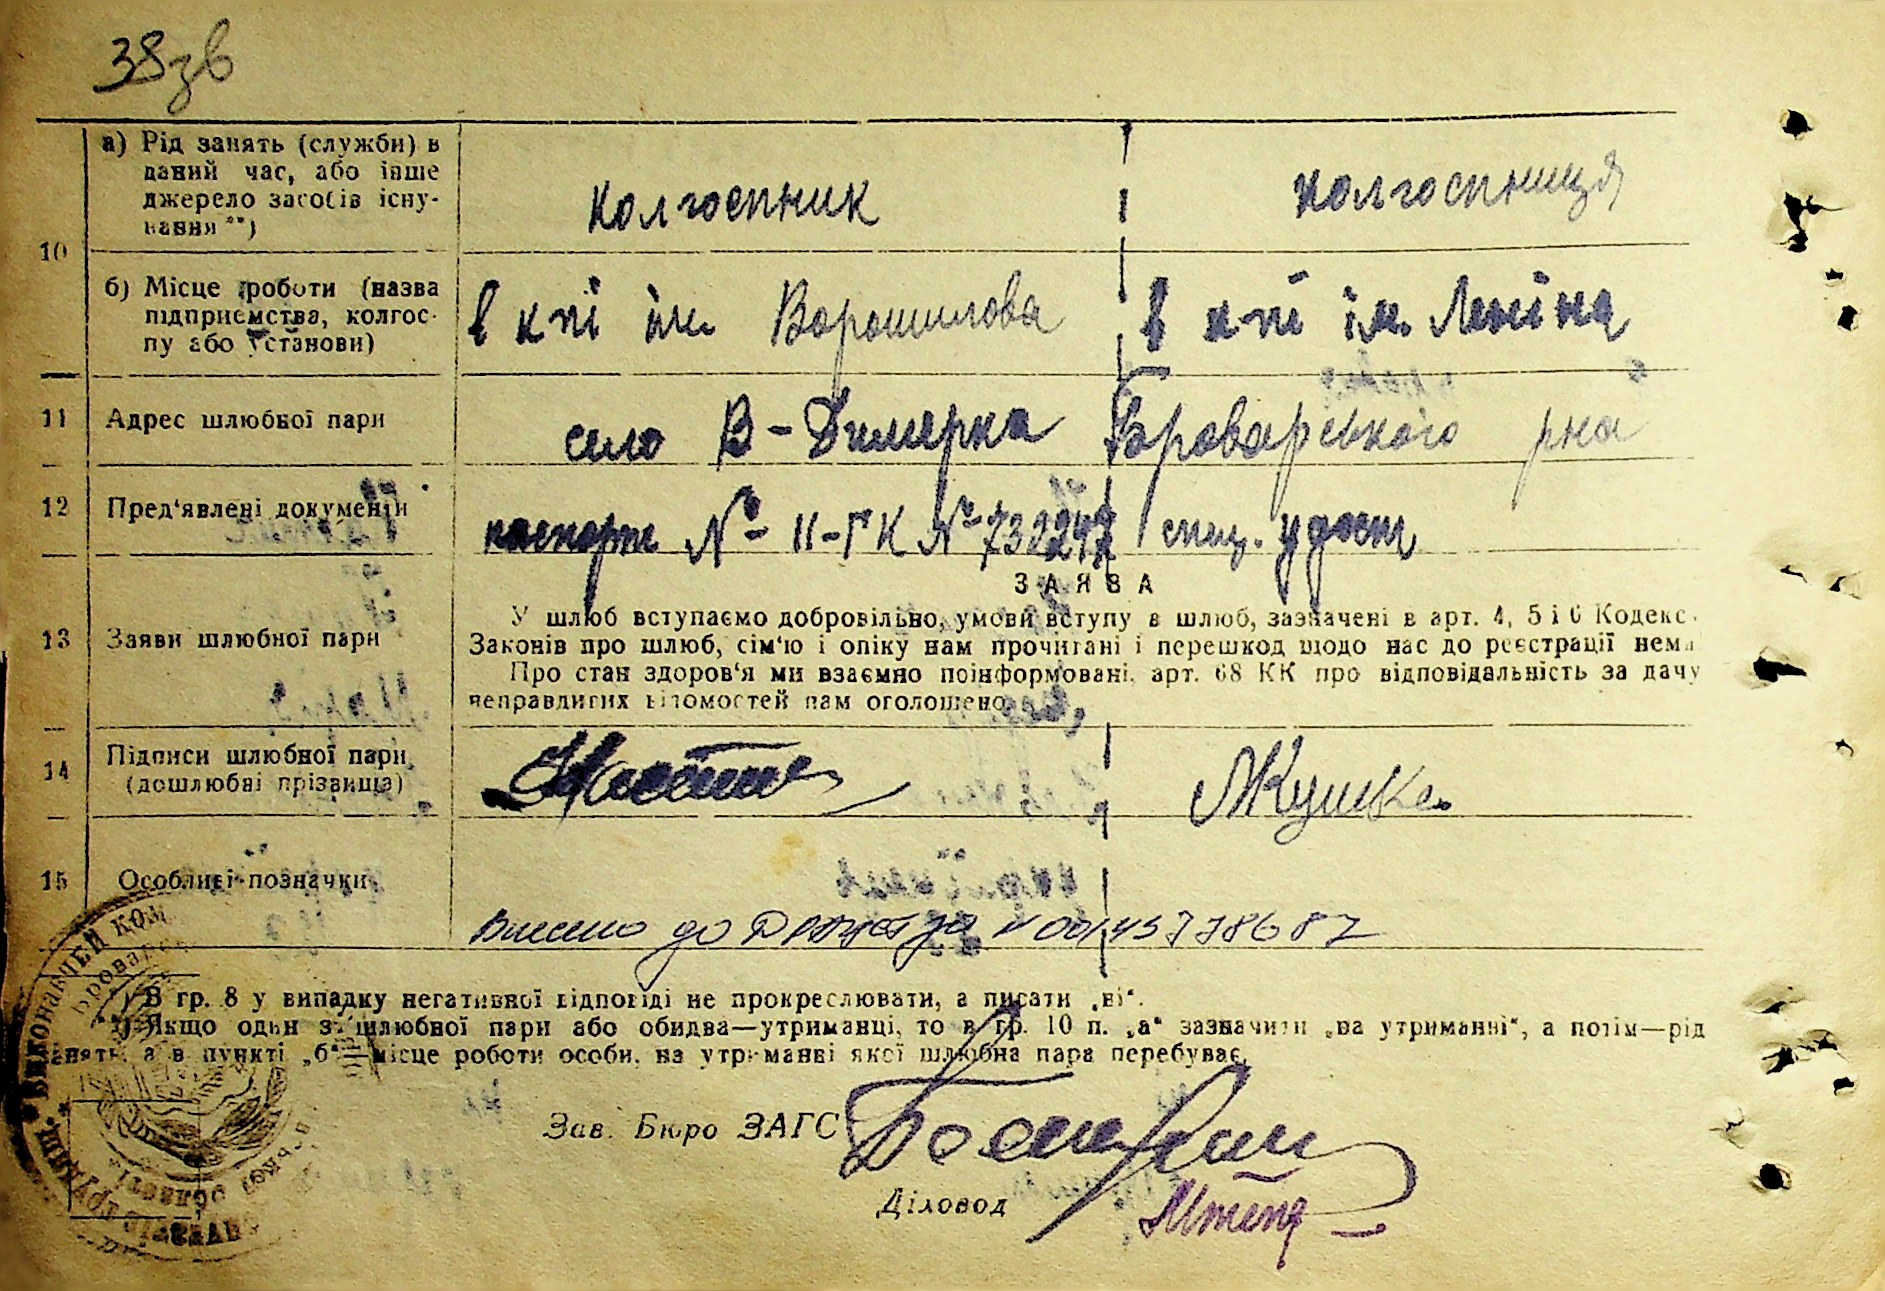 38зв
а) Рід занять (служби) в
даний час, або інше
джерело засобів існу-
вання **)
колгоспник
колгоспниця
10
б) Місце роботи (назва
підприємства, колгос-
пу або установи)
в кпі ім. Ворошилова
в кпі ім. Леніна
11 Адрес шлюбної пари
село В-Димерка Броварського рна
12 Пред'явлені документи
паспорт № II-ГК № удост
ЗАЯВА
13 Заяви шлюбної пари
У шлюб вступаємо добровільно, умови вступу в шлюб, зазначені в арт. 4, 5 і 6 Кодекс
Законів про шлюб, сім'ю і опіку нам прочитані і перешкод щодо нас до реєстрації нема
Про стан здоров'я ми взаємно поінформовані, арт. 68 КК про відповідальність за дачу
неправдивих відомостей нам оголошено.
14 Підписи шлюбної пари
(дошлюбні прізвища)
15 Особливі позначки
Внесено до № 00145778687
*) В гр. 8 у випадку негативної відповіді не прокреслювати, а писати „ні".
**) Якщо один з шлюбної пари або обидва—утриманці, то в гр. 10 п. „а" зазначити „на утриманні", а потім—рід
занять, а в пункті „б"—місце роботи особи, на утриманні якої шлюбна пара перебуває.
Зав. Бюро ЗАГС
Діловод